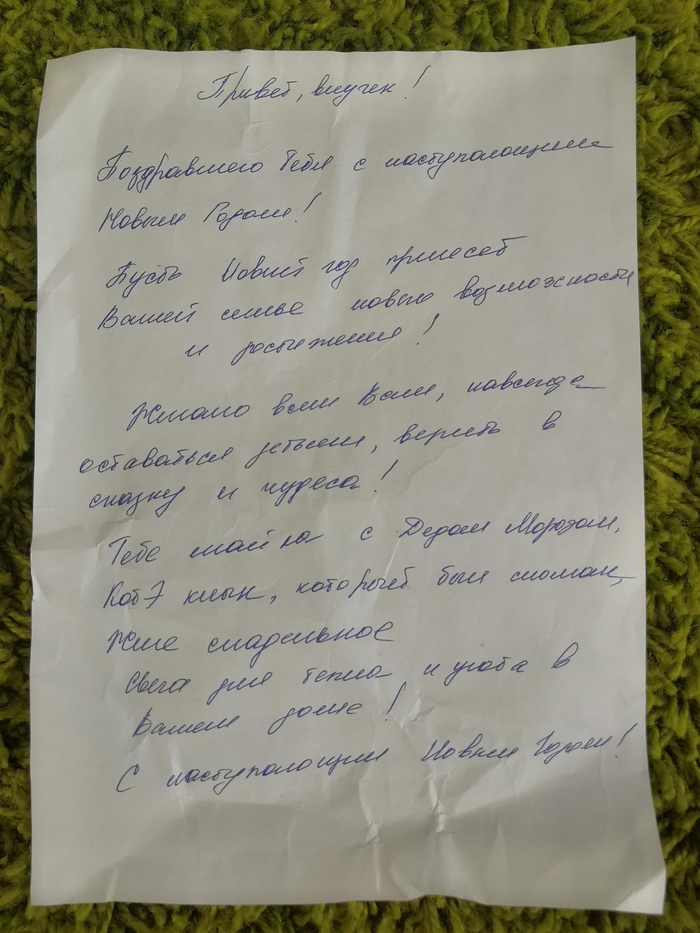 Привет, внучек!
Поздравляю Тебя с наступающим
Новым Годом!
Пусть Новый год принесет
Вашей семье новые возможности
и достижения!
Желаю всем Вам, навсегда
оставаться детьми, верить в
сказку и чудеса!
Тебе майка с Дедом Морозом,
КотЭ клык, который был сломан,
Жене сладенькое
Свеча для тепла и уюта в
Вашем доме!
С наступающим Новым Годом!